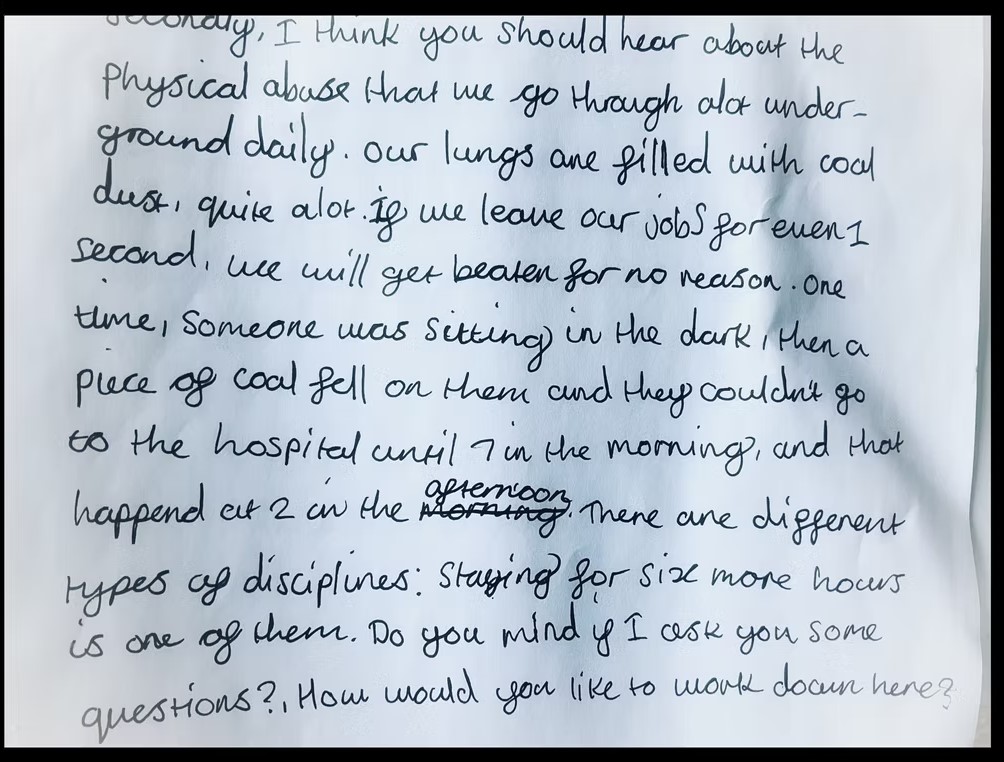 secondly, I think you should hear about the
Physical abuse that we go through alot under-
ground daily. Our lungs are filled with coal
dust, quite alot. If we leave our jobs for even 1
second, we will get beaten for no reason. One
time, someone was sitting in the dark, then a
piece of coal fell on them and they couldn't go
to the hospital until 7 in the morning, and that
afternoon
happend at 2 in the morning. There are different
types of disciplines: Staying for six more hours
is one of them. Do you mind if I ask you some
questions?, How would you like to work down here?